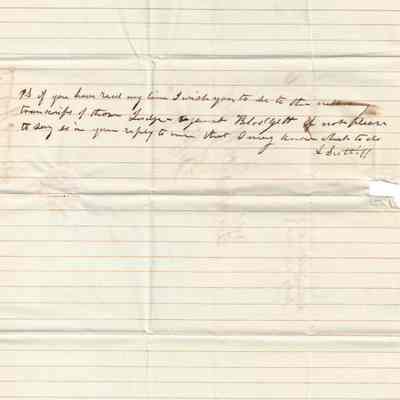 PS if you have recd my line I wish you to see to the
transcripts of those Judgm against Blodgett If not please
to say so in your reply to me that I may know what to do
L Sutliff